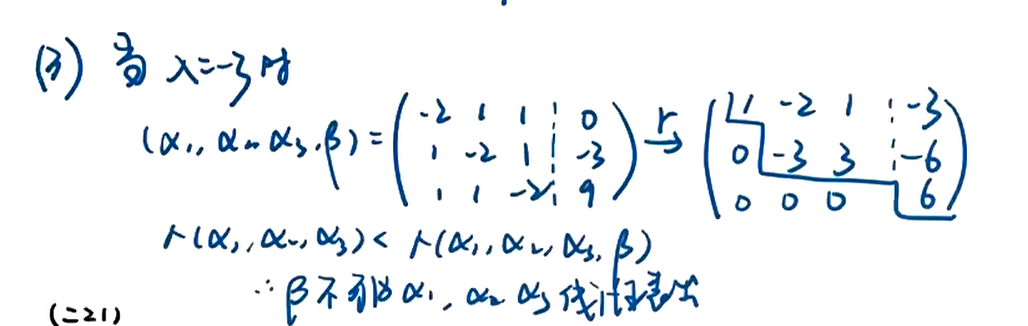 (3) 当 λ=-3 时
(α₁, α₂, α₃, β) = ( -2 1 1 ¦ 0 ) r→ ( 1 -2 1 ¦ -3 )
( 1 -2 1 ¦ -3 ) ( 0 -3 3 ¦ -6 )
( 1 1 -2 ¦ 9 ) ( 0 0 0 6 )
r(α₁, α₂, α₃) < r(α₁, α₂, α₃, β)
∴ β 不可由 α₁, α₂ α₃ 线性表出
(=21)